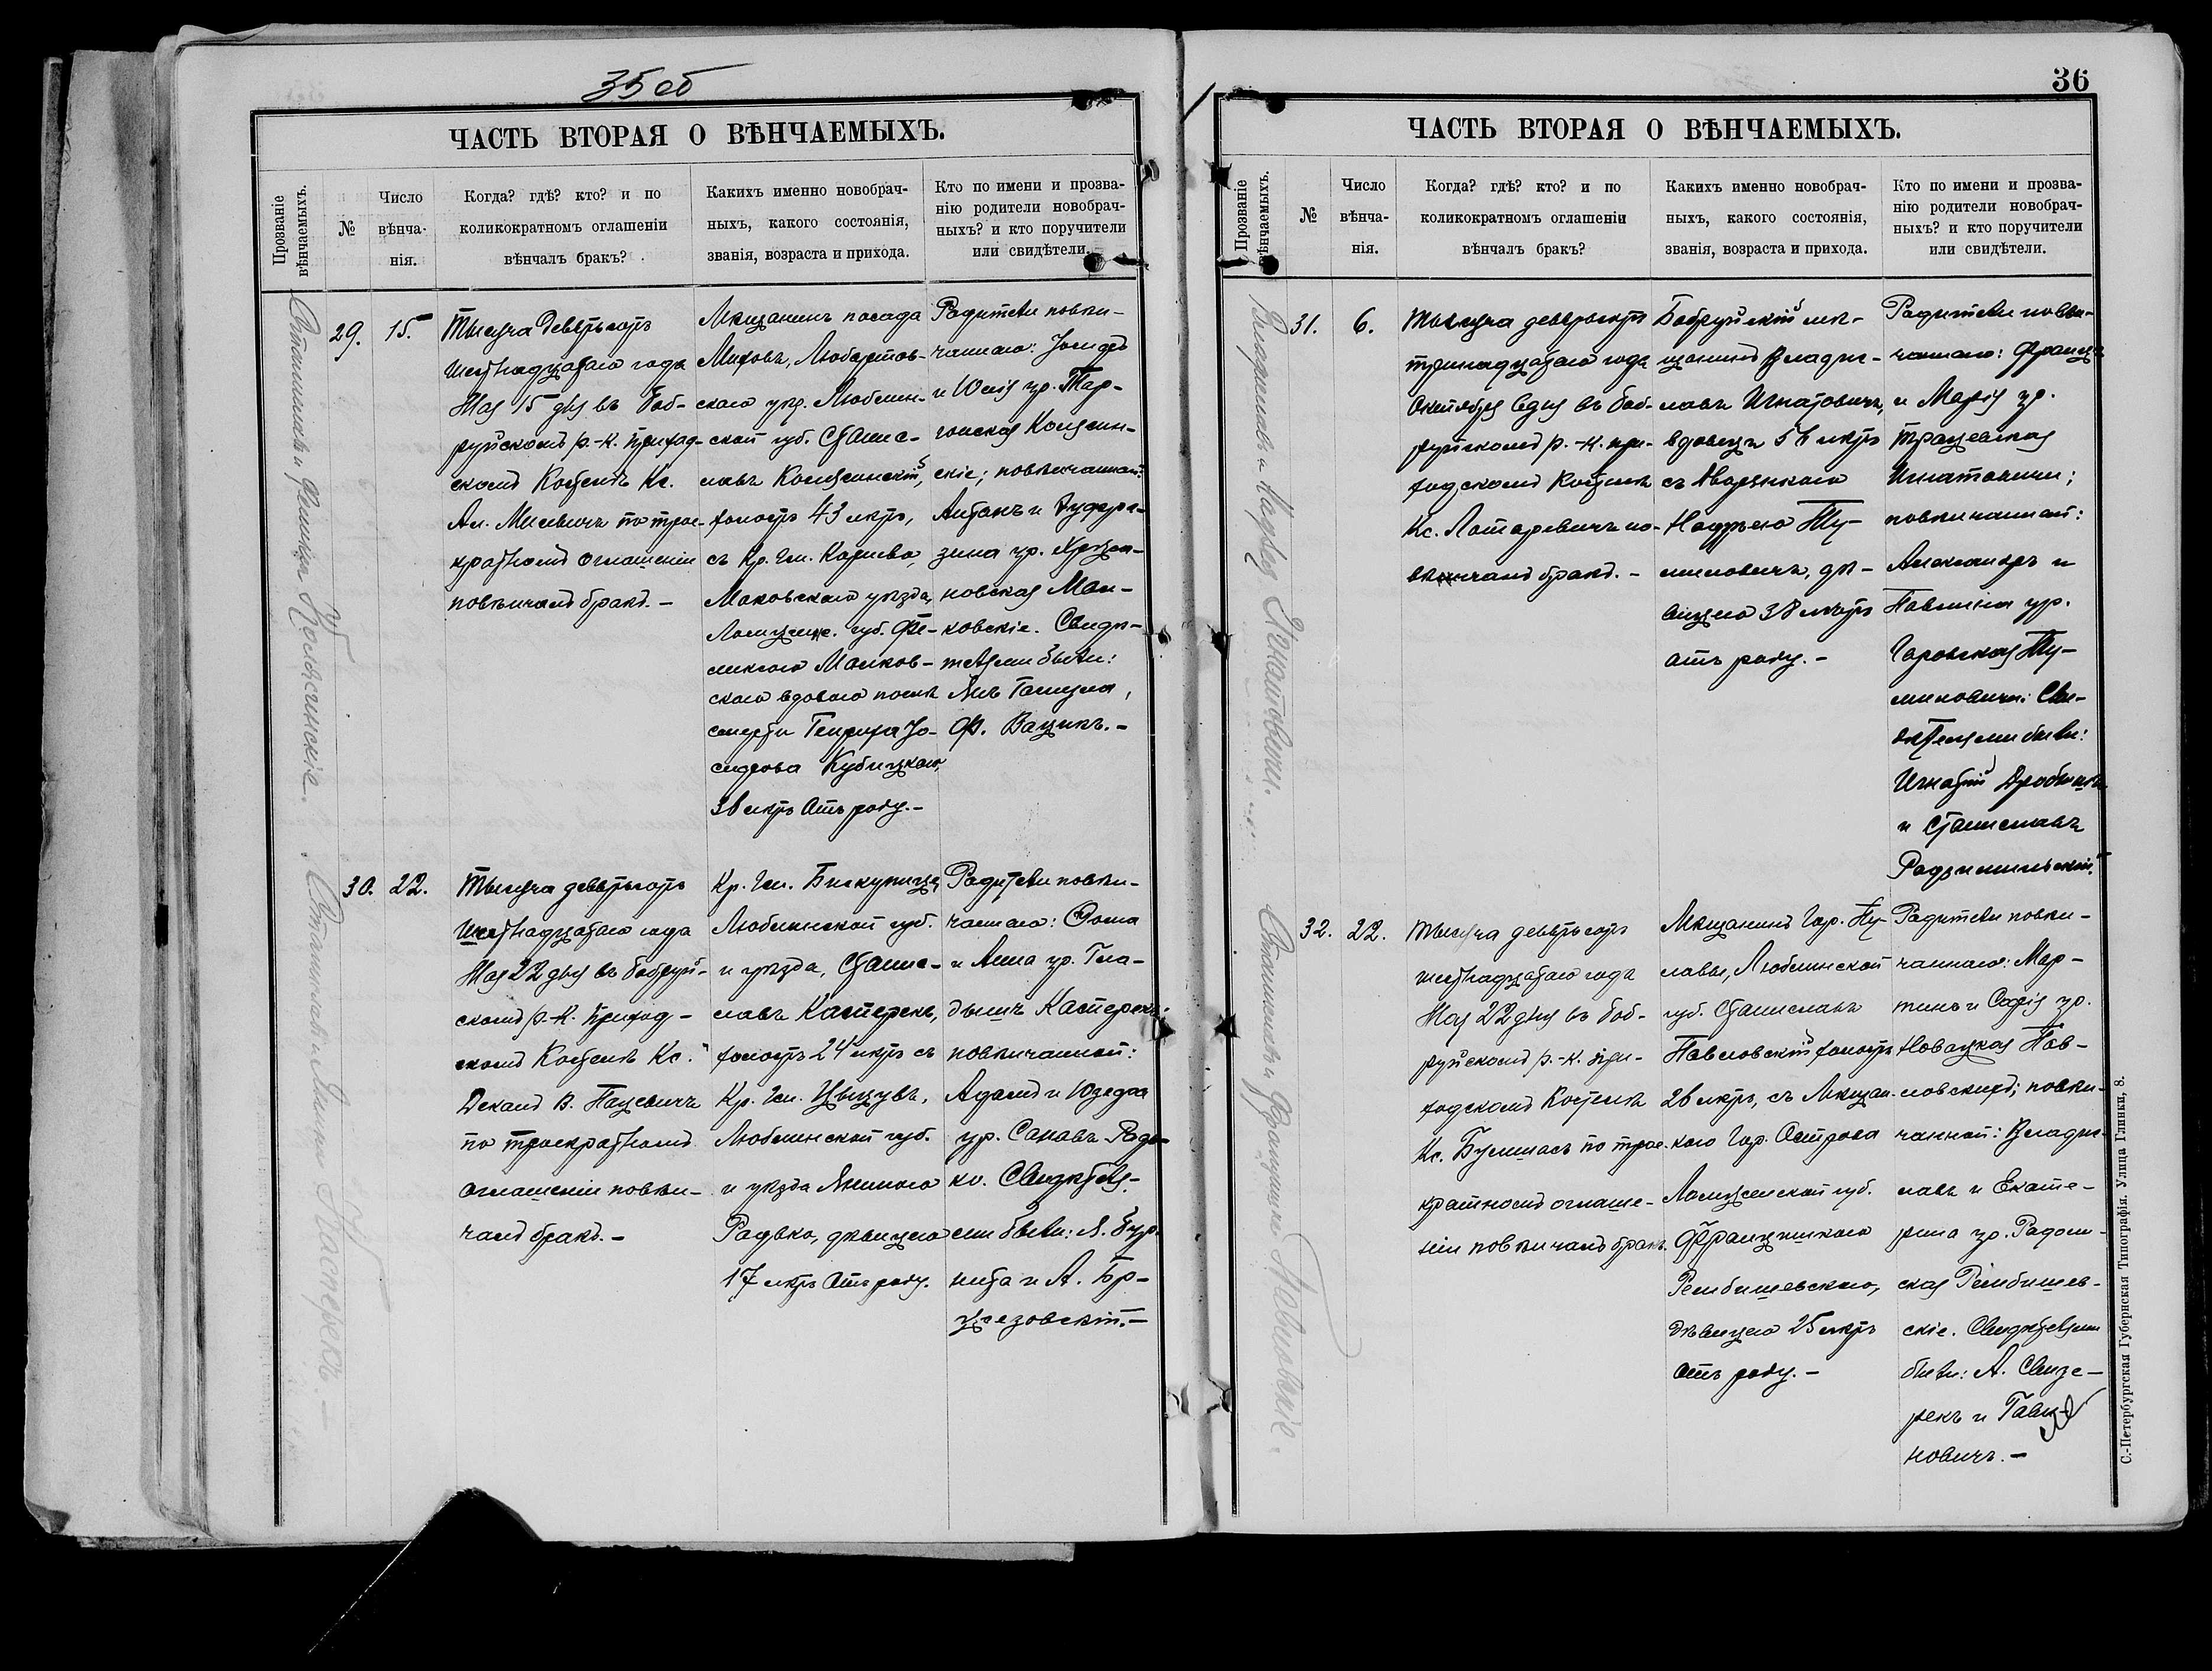 35 об
ЧАСТЬ ВТОРАЯ О ВѢНЧАЕМЫХЪ.
Прозваніе вѣнчаемыхъ.
№
Число
вѣнча-
нія.
Когда? гдѣ? кто? и по
коликократномъ оглашеніи
вѣнчалъ бракъ?
Какихъ именно новобрач-
ныхъ, какого состоянія,
званія, возраста и прихода.
Кто по имени и прозва-
нію родители новобрач-
ныхъ? и кто поручители
или свидѣтели.
29.
15.
Тысяча девятьсотъ
шестнадцатаго года
Мая 15 дня въ Боб-
руйскомъ р.-к. приход-
скомъ Костелѣ Кс.
по трое-
кратномъ оглашеніи
повѣнчалъ бракъ. –
Мѣщанинъ посада
Любартов-
скаго уѣз. Люблин-
ской губ. Станис-
лавъ
холостъ 43 лѣтъ,
съ Кр. гм. Карнево,
Маковскаго уѣзда,
Ломжинс. губ. Фе-
ликсою Малков-
скою вдовою послѣ
смерти Генриха Іо-
сифова Кубицкаго,
36 лѣтъ отъ роду. –
Родители повѣн-
чаннаго: Іосифъ
и Юлія ур.
повѣнчанной:
ур.
новская Мал-
ковскіе. Свидѣ-
телями были:
Янъ
Ф. Вацикъ. –
30.
22.
Тысяча девятьсотъ
шестнадцатаго года
Мая 22 дня въ Бобруй-
скомъ р.-к. приход-
скомъ Костелѣ Кс.
Деканъ В. Пацевичъ
по троекратномъ
оглашеніи повѣн-
чалъ бракъ. –
Кр. гм. Бискупице,
Люблинской губ.
и уѣзда, Станис-
лавъ Касперекъ,
холостъ 24 лѣтъ съ
Кр. гм.
Люблинской губ.
и уѣзда Яниною
Радько, дѣвицею
17 лѣтъ отъ роду.
Родители повѣн-
чаннаго: Ѳома
и Анна ур. Гла-
дышъ Касперекъ;
повѣнчанной:
Адамъ и Юзефа
ур. Радь-
ко. Свидѣтеля-
ми были: Я.
и А. Бр-
жезовскій. –
Станиславъ и Янина Касперекъ. –
36
ЧАСТЬ ВТОРАЯ О ВѢНЧАЕМЫХЪ.
Прозваніе вѣнчаемыхъ.
№
Число
вѣнча-
нія.
Когда? гдѣ? кто? и по
коликократномъ оглашеніи
вѣнчалъ бракъ?
Какихъ именно новобрач-
ныхъ, какого состоянія,
званія, возраста и прихода.
Кто по имени и прозва-
нію родители новобрач-
ныхъ? и кто поручители
или свидѣтели.
31.
6.
Тысяча девятьсотъ
тринадцатаго года
Октября 6 дня въ Боб-
руйскомъ р.-к. при-
ходскомъ Костелѣ
Кс. Лотаревичъ по-
вѣнчалъ бракъ. –
Бобруйскій мѣ-
щанинъ Владис-
лавъ Игнатовичъ,
вдовецъ 56 лѣтъ
съ дворянкою
Ту-
миловичъ, дѣ-
вицею 38 лѣтъ
отъ роду. –
Родители повѣн-
чаннаго: Францъ
и Марія ур.
Игнатовичи;
повѣнчанной:
Александръ и
Павлина ур.
Ту-
миловичи: Сви-
дѣтелями были:
Игнатій
и Станиславъ
32.
22.
Тысяча девятьсотъ
шестнадцатаго года
Мая 22 дня въ Боб-
руйскомъ р.-к. при-
ходскомъ Костелѣ
Кс. по трое-
кратномъ оглаше-
ніи повѣнчалъ бракъ.
Мѣщанинъ гор. Пу-
лавы, Люблинской
губ. Станиславъ
Павловскій холостъ
26 лѣтъ, съ мѣщан-
кою гор. Острова
Ломжинской губ.
Францишкою
Рембишевскою,
дѣвицею 25 лѣтъ
отъ роду. –
Родители повѣн-
чаннаго: Мар-
тинъ и Софія ур.
Новацкая Пав-
ловскихъ; повѣн-
чанной: Владис-
лавъ и Екате-
рина ур. Радом-
ская Рембишев-
скіе. Свидѣтелями
были: А.
рекъ и
новичъ. –
С.-Петербургская Губернская Типографія. Улица Глинки, 8.